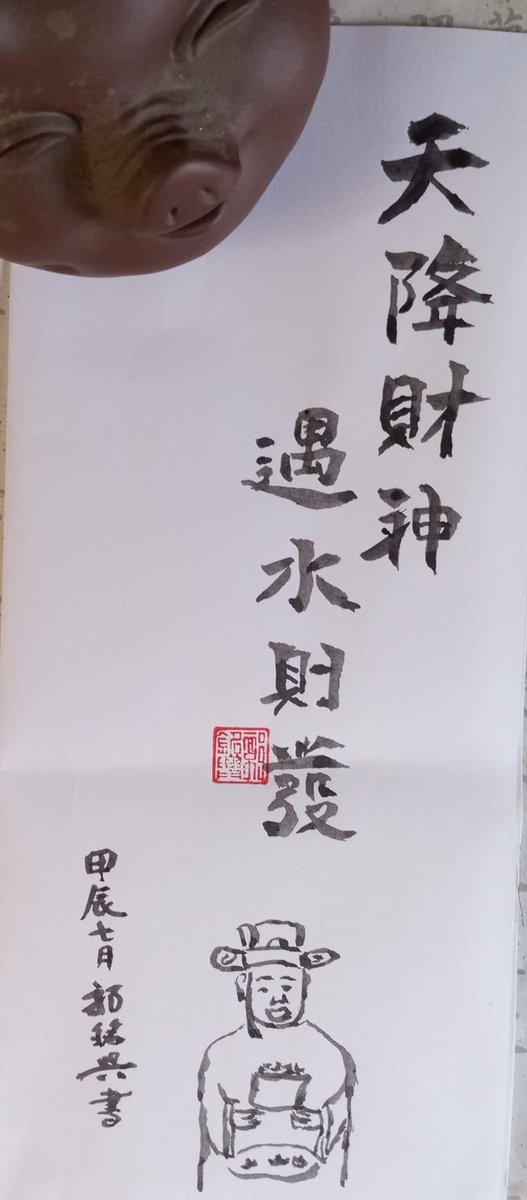 天降財神
遇水則發
甲辰七月 郭銘興書